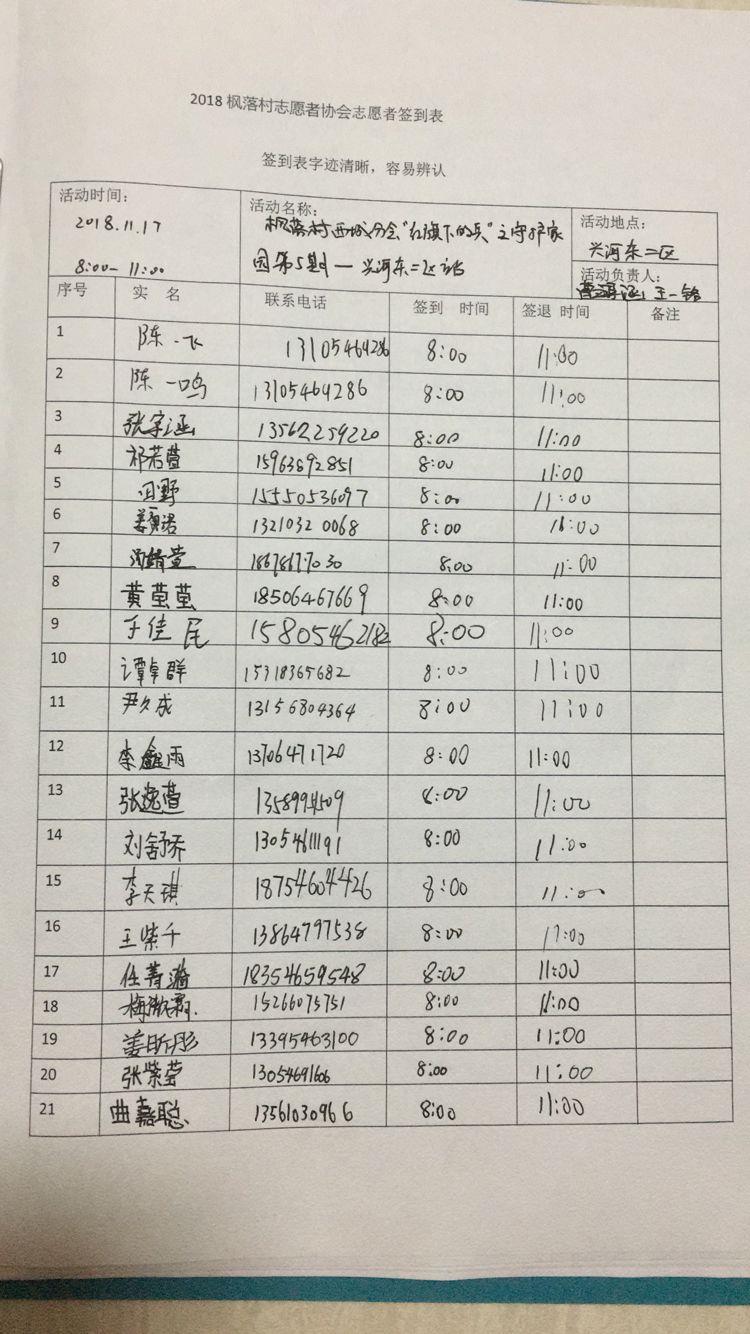 2018 枫落村志愿者协会志愿者签到表
签到表字迹清晰，容易辨认
活动时间： 2018.11.17 8:00-11:00
活动名称： 枫落村西城分会“红旗下的兵”之守护家园第5期—兴河东二区站
活动地点： 兴河东二区
活动负责人： 王一铭
序号 实 名 联系电话 签到 时间 签退 时间 备注
1 陈一飞 13105464286 8:00 11:00
2 陈一鸣 13105464286 8:00 11:00
3 张宇涵 13562259220 8:00 11:00
4 祁若萱 15963892851 8:00 11:00
5 田野 15550536097 8:00 11:00
6 13210320068 8:00 11:00
7 18678677030 8:00 11:00
8 黄萤萤 18506467669 8:00 11:00
9 于佳民 15805462182 8:00 11:00
10 谭卓群 15318365682 8:00 11:00
11 尹久成 13156804364 8:00 11:00
12 李鑫雨 13706471720 8:00 11:00
13 张逸萱 8:00 11:00
14 刘舒乔 13054611191 8:00 11:00
15 李天琪 18754604426 8:00 11:00
16 王紫千 13864797538 8:00 11:00
17 任菁 18354659548 8:00 11:00
18 15266075751 8:00 11:00
19 姜昕彤 13395463100 8:00 11:00
20 张紫莹 13054691606 8:00 11:00
21 曲嘉聪 13561030966 8:00 11:00